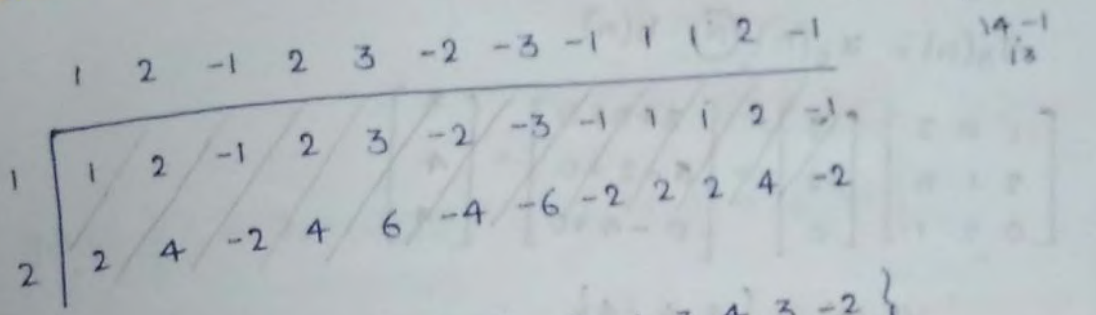 1 2 -1 2 3 -2 -3 -1 1 1 2 -1
14-1
13
1 1 2 -1 2 3 -2 -3 -1 1 1 2 -1
2 2 4 -2 4 6 -4 -6 -2 2 2 4 -2
4 3 -2 }